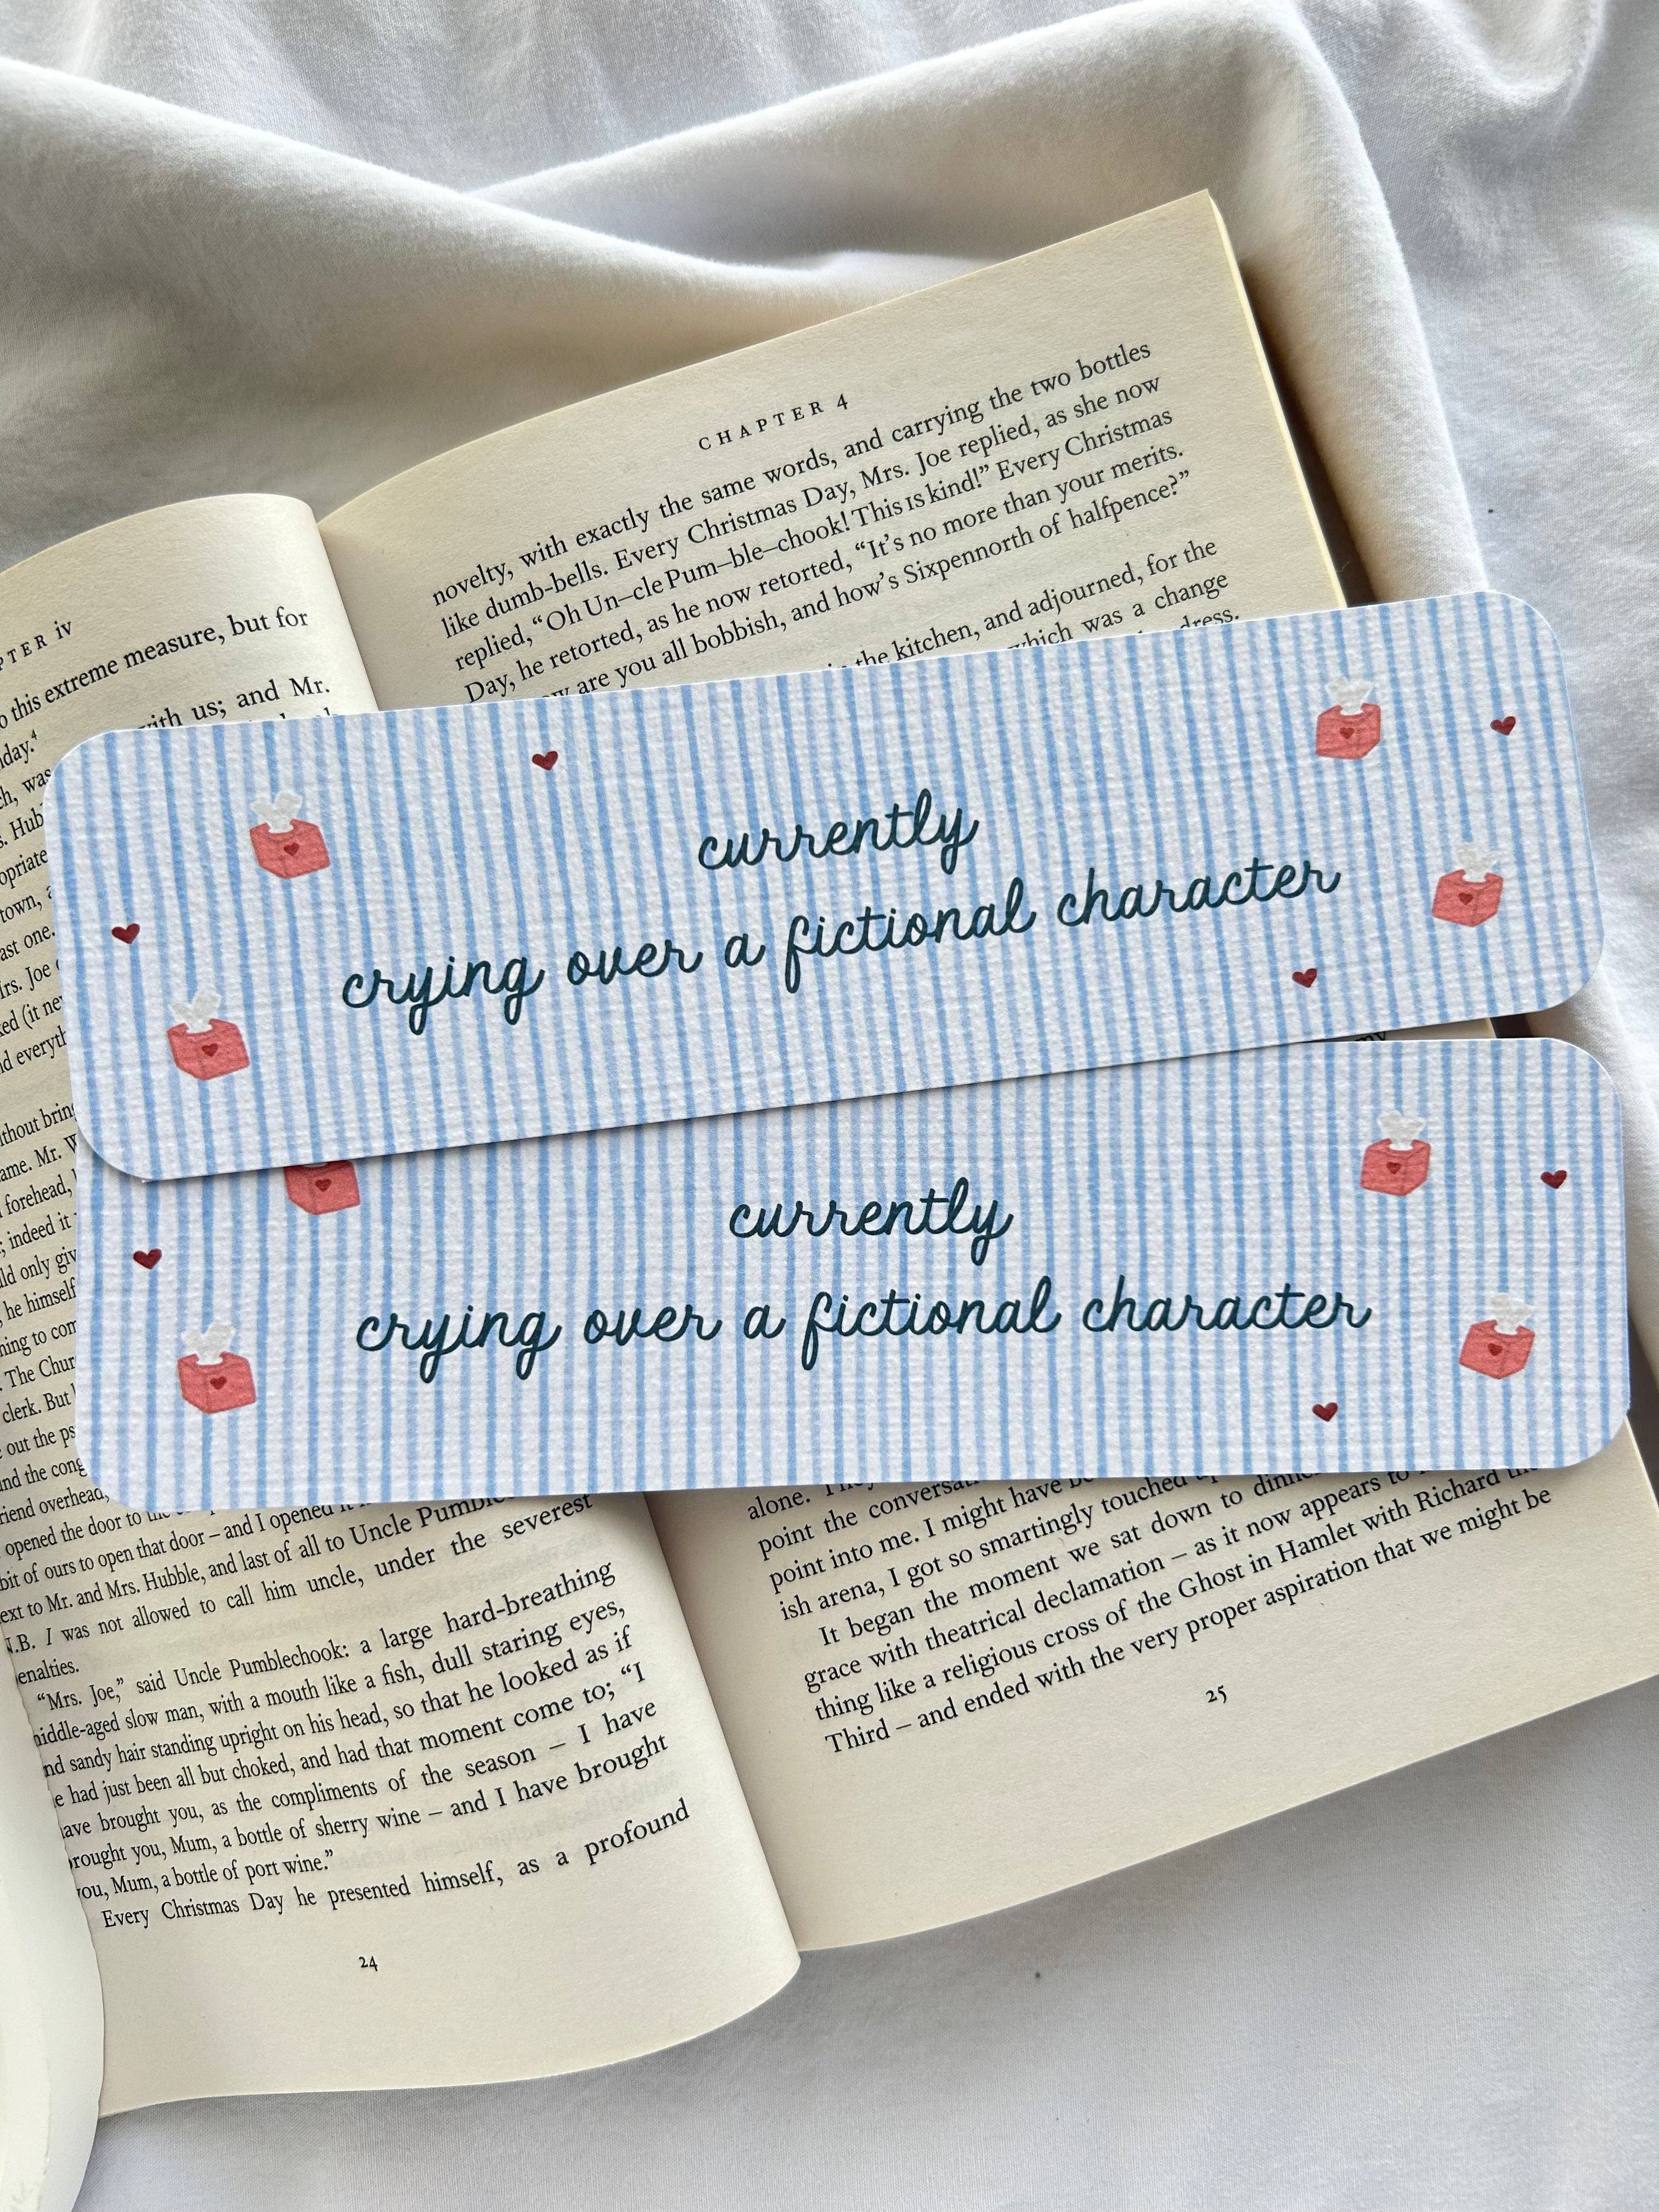 PTER iv
o this extreme measure, but for
with us; and Mr.
day.⁴
ch, was
s. Hub
opriate
town, a
ast one.
Mrs. Joe
ked (it ne
nd everyth
thout bring
ame. Mr. W
forehead,
; indeed it
ld only giv
, he himself
ning to com
. The Chur
clerk. But
e out the ps
nd the cong
riend overhead,
opened the door to the
bit of ours to open that door – and I opened it
ext to Mr. and Mrs. Hubble, and last of all to Uncle Pumble
N.B. I was not allowed to call him uncle, under the severest
enalties.
“Mrs. Joe,” said Uncle Pumblechook: a large hard-breathing
middle-aged slow man, with a mouth like a fish, dull staring eyes,
nd sandy hair standing upright on his head, so that he looked as if
e had just been all but choked, and had that moment come to; “I
ave brought you, as the compliments of the season – I have
rought you, Mum, a bottle of sherry wine – and I have brought
you, Mum, a bottle of port wine.”
Every Christmas Day he presented himself, as a profound
24
CHAPTER 4
novelty, with exactly the same words, and carrying the two bottles
like dumb-bells. Every Christmas Day, Mrs. Joe replied, as she now
replied, “Oh Un–cle Pum–ble–chook! This IS kind!” Every Christmas
Day, he retorted, as he now retorted, “It’s no more than your merits.
are you all bobbish, and how’s Sixpennorth of halfpence?”
the kitchen, and adjourned, for the
which was a change
dress.
currently
crying over a fictional character
my
currently
crying over a fictional character
alone. They
point the conversati
point into me. I might have be
ish arena, I got so smartingly touched
It began the moment we sat down to dinne
grace with theatrical declamation – as it now appears to
thing like a religious cross of the Ghost in Hamlet with Richard the
Third – and ended with the very proper aspiration that we might be
25